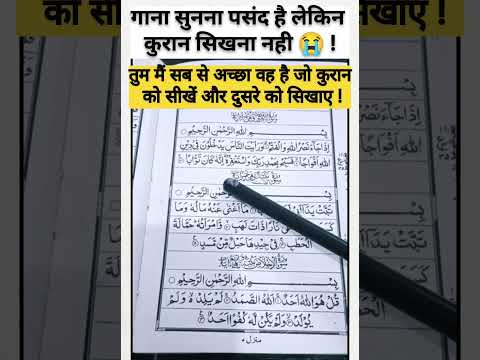 गाना सुनना पसंद है लेकिन
कुरान सिखना नही 😭 !
तुम मैं सब से अच्छा वह है जो कुरान
को सीखें और दुसरे को सिखाए !
بِسْمِ اللّٰهِ الرَّحْمٰنِ الرَّحِيْمِ
اِذَا جَآءَ نَصْرُ اللّٰهِ وَالْفَتْحُ وَرَاَيْتَ النَّاسَ يَدْخُلُوْنَ فِيْ دِيْنِ
اللّٰهِ اَفْوَاجًا فَسَبِّحْ بِحَمْدِ رَبِّكَ وَاسْتَغْفِرْهُ اِنَّهٗ كَانَ تَوَّابًا
اللّٰهِ الرَّحْمٰنِ الرَّحِيْمِ
تَبَّتْ يَدَآ مَآ اَغْنٰى عَنْهُ مَالُهٗ وَمَا
كَسَبَ نَارًا ذَاتَ لَهَبٍ وَّامْرَاَتُهٗ حَمَّالَةَ
الْحَطَبِ فِيْ جِيْدِهَا حَبْلٌ مِّنْ مَّسَدٍ
بِسْمِ اللّٰهِ الرَّحْمٰنِ الرَّحِيْمِ
قُلْ هُوَ اللّٰهُ اَحَدٌ اَللّٰهُ الصَّمَدُ لَمْ يَلِدْ وَلَمْ
يُوْلَدْ وَلَمْ يَكُنْ لَّهٗ كُفُوًا اَحَدٌ
منزل